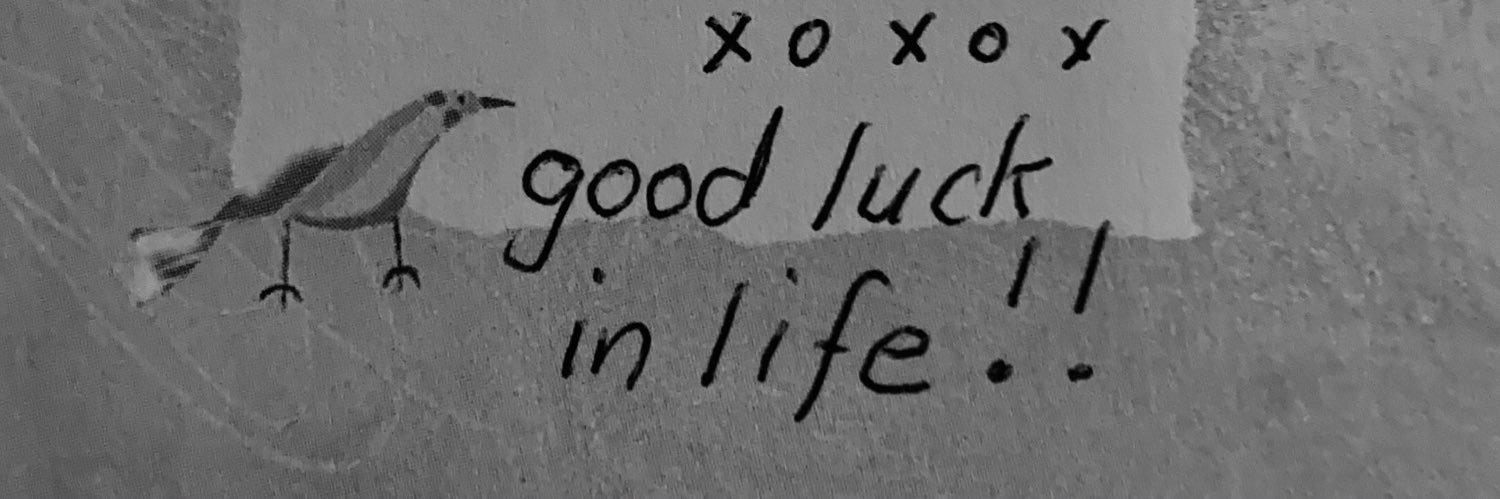 x o x o x
good luck
in life!!